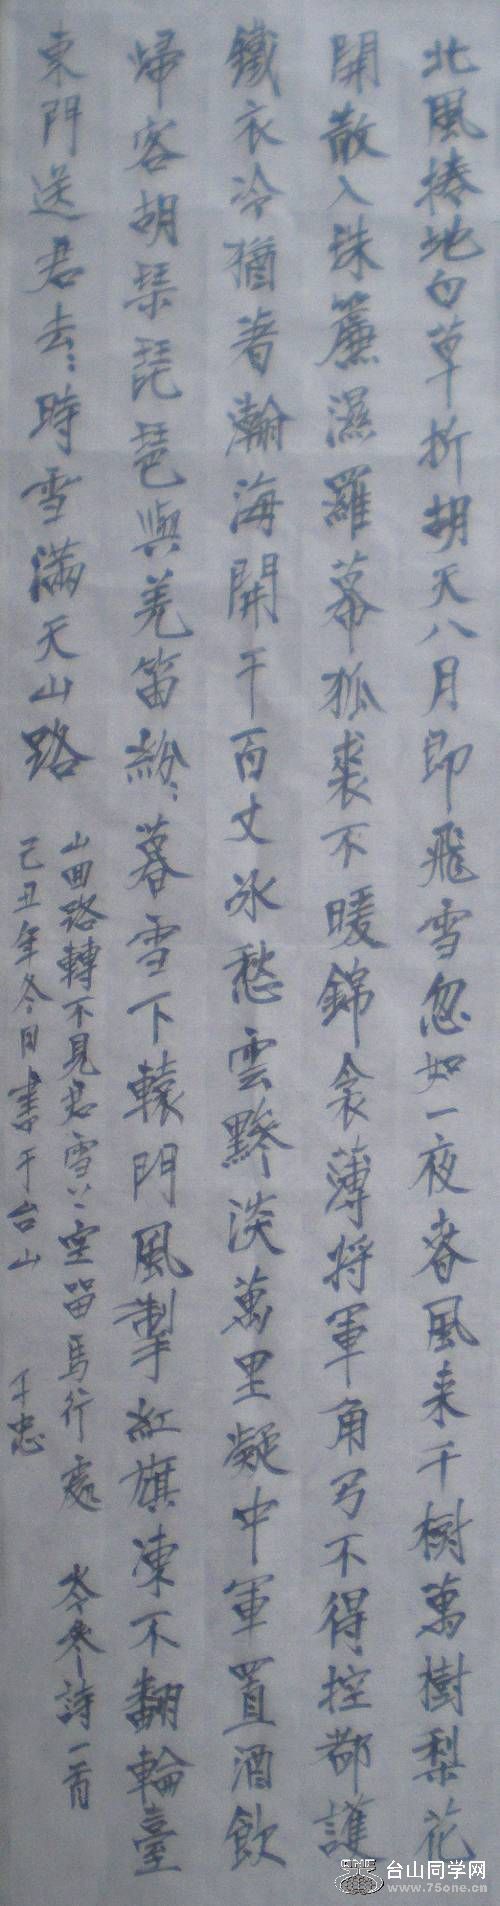 北風捲地白草折胡天八月即飛雪忽如一夜春風来千樹萬樹梨花
開散入珠簾濕羅幕狐裘不暖錦衾薄将軍角弓不得控都護
鐵衣冷猶著瀚海闌干百丈冰愁雲黲淡萬里凝中軍置酒飲
歸客胡琴琵琶與羌笛紛〻暮雪下轅門風掣紅旗凍不翻輪臺
東門送君去〻時雪滿天山路
山回路轉不見君雪上空留馬行處 岑參詩一首
己丑年冬日書于台山 忠
台山同学网
www.75one.cn